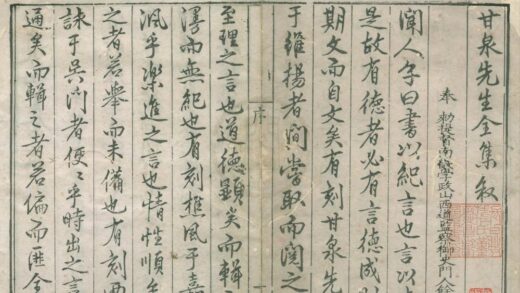 甘泉先生全集叙
奉 勑提督南畿學政山西道監察御史門人餘
聞人子曰書以紀言也言以
是故有德者必有言德成
期文而自文矣有刻甘泉先
于維揚者間嘗取而閱之
序
至理之言也道德顯矣而輯
漫而無紀也有刻樵風于嘉
渢乎樂進之言也情性順
之者若舉而未備也有刻西
詠于吳門者便〻乎時出之言
通矣而輯之者若偏而匪全